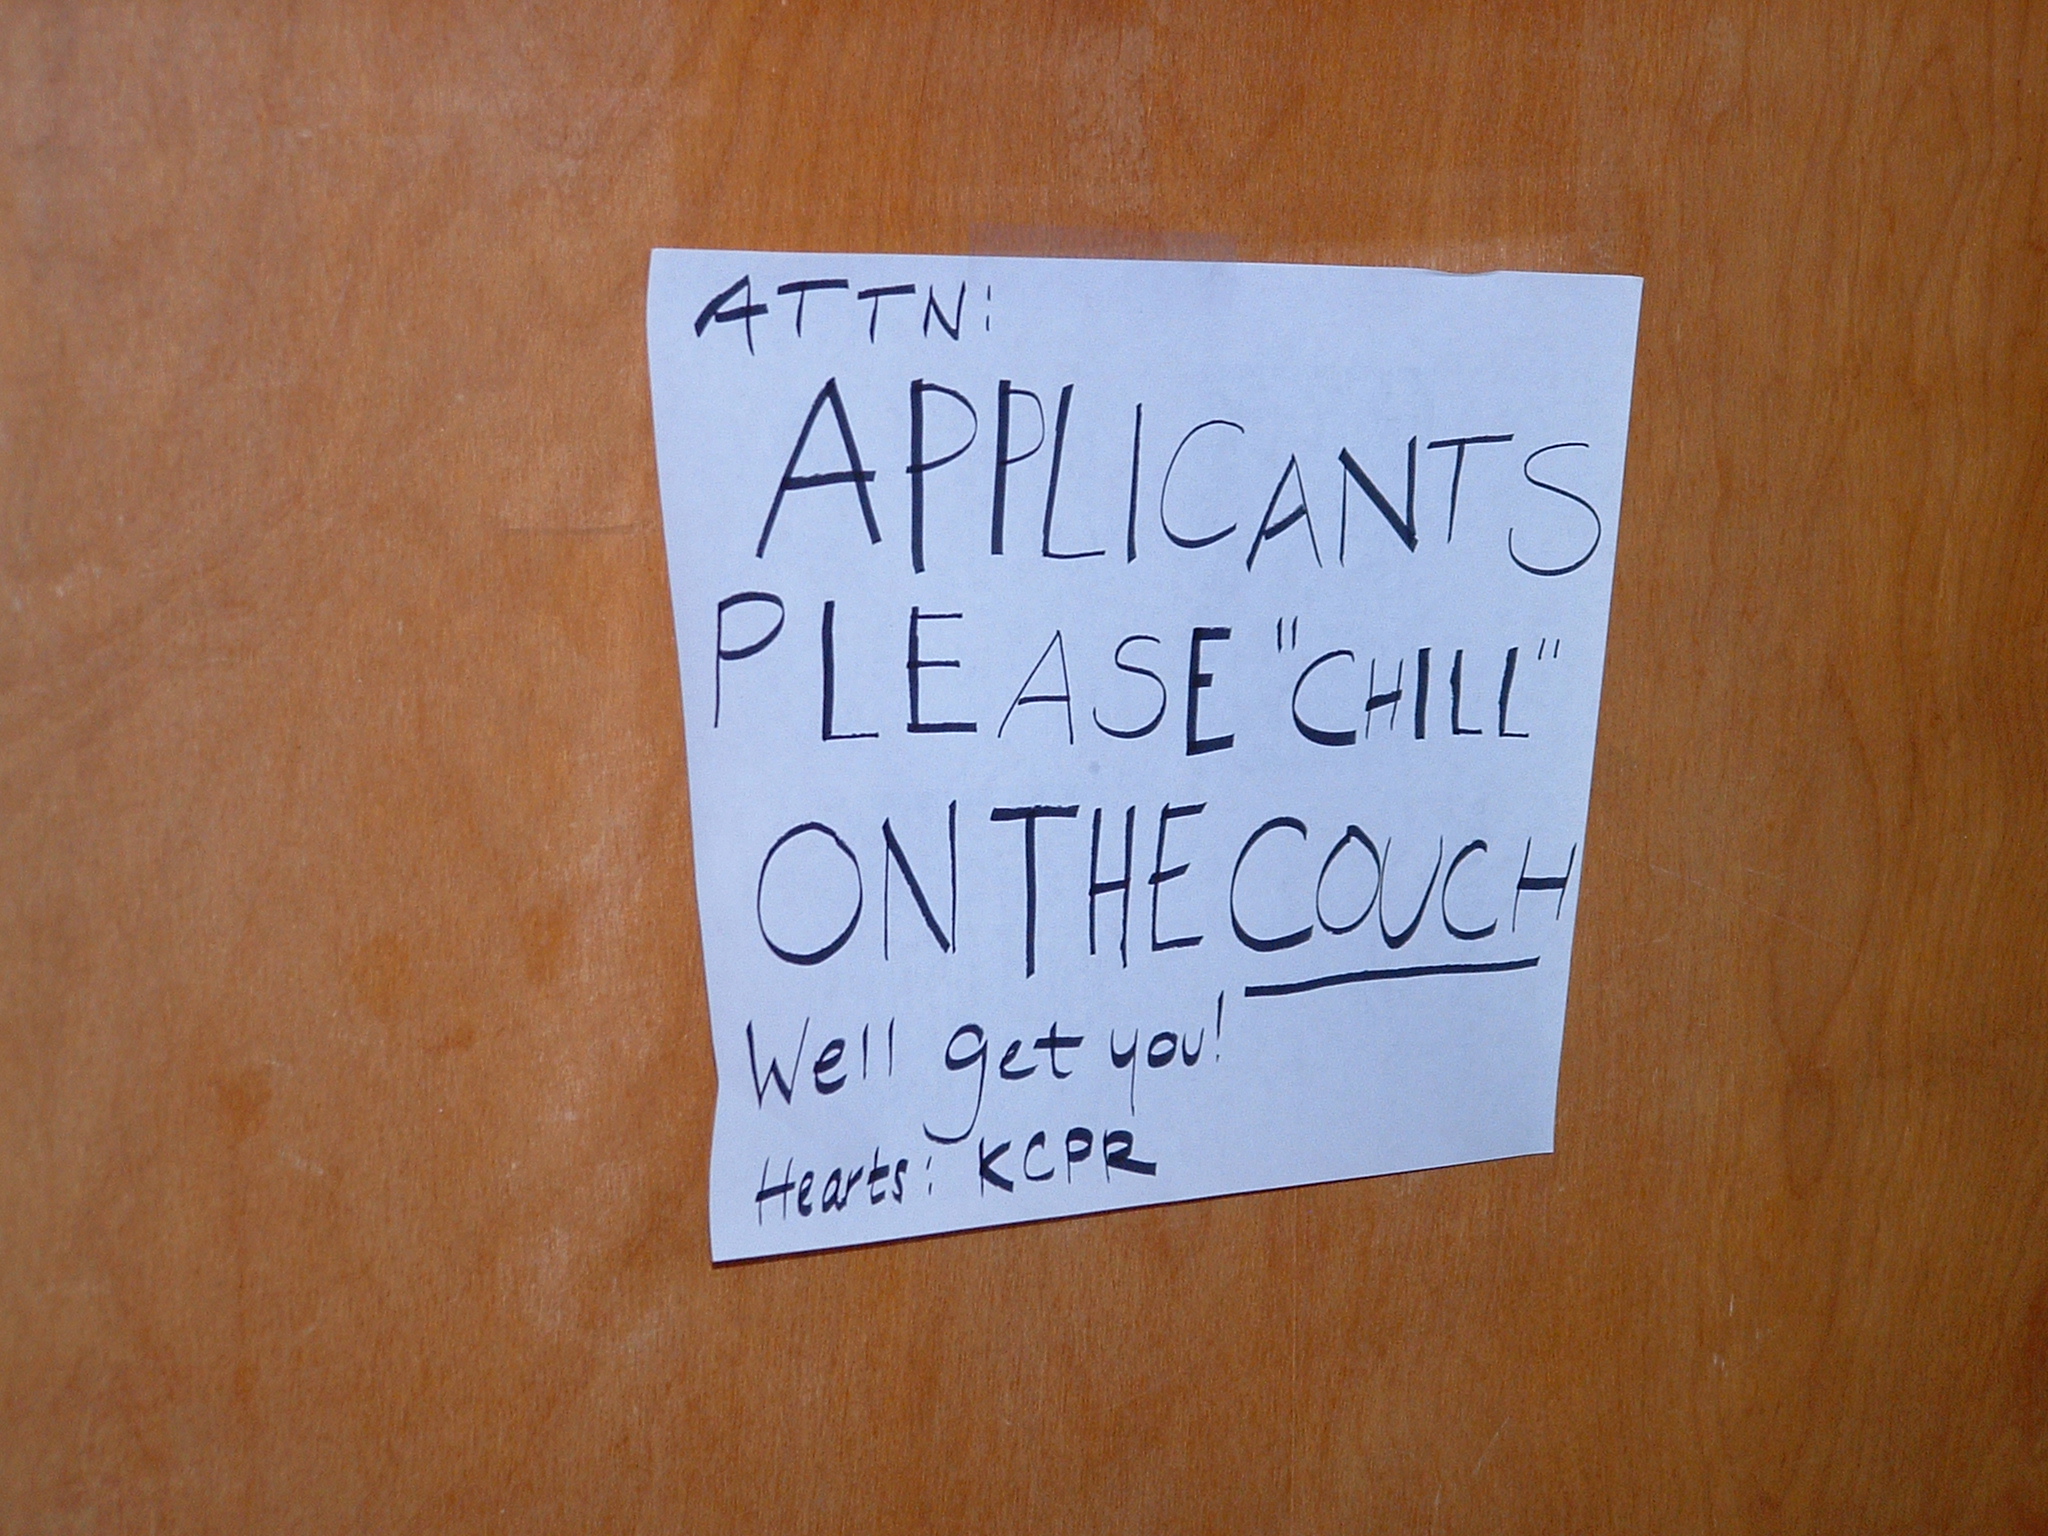 ATTN:
APPLICANTS
PLEASE "CHILL"
ON THE COUCH
Well get you!
Hearts: KCPR